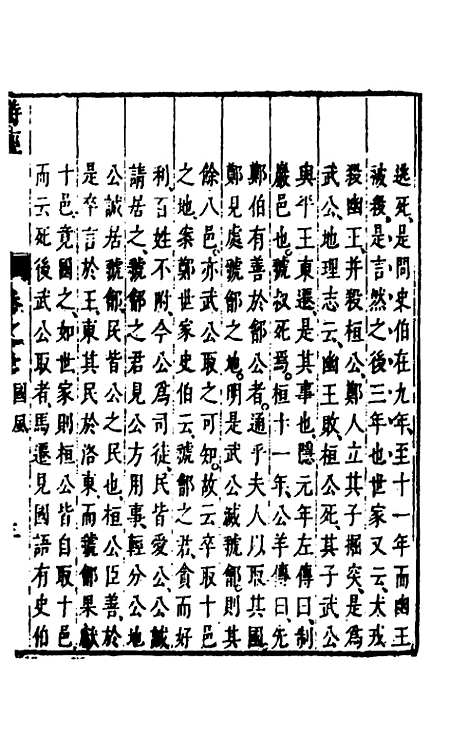 迯死是問史伯在九年至十一年而幽王
被殺是言然之後三年也世家又云犬戎
殺幽王并殺桓公鄭人立其子掘突是爲
武公地理志云幽王敗桓公死其子武公
與平王東遷是其事也隱元年左傳曰制
巖邑也虢叔死焉桓十一年公羊傳曰先
鄭伯有善於鄶公者通乎夫人以取其國
鄭見處虢鄶之地明是武公滅虢鄶則其
餘八邑亦武公取之可知故云卒取十邑
之地案鄭世家史伯云虢鄶之君貪而好
利百姓不附今公爲司徒民皆愛公公誠
請居之虢鄶之君見公方用事輕分公地
公誠居虢鄶民皆公之民也桓公臣善於
是卒言於王東其民於洛東而虢鄶果獻
十邑竟國之如世家則桓公皆自取十邑
而云死後武公取者馬遷見國語有史伯
詩經 卷之七 國風 三